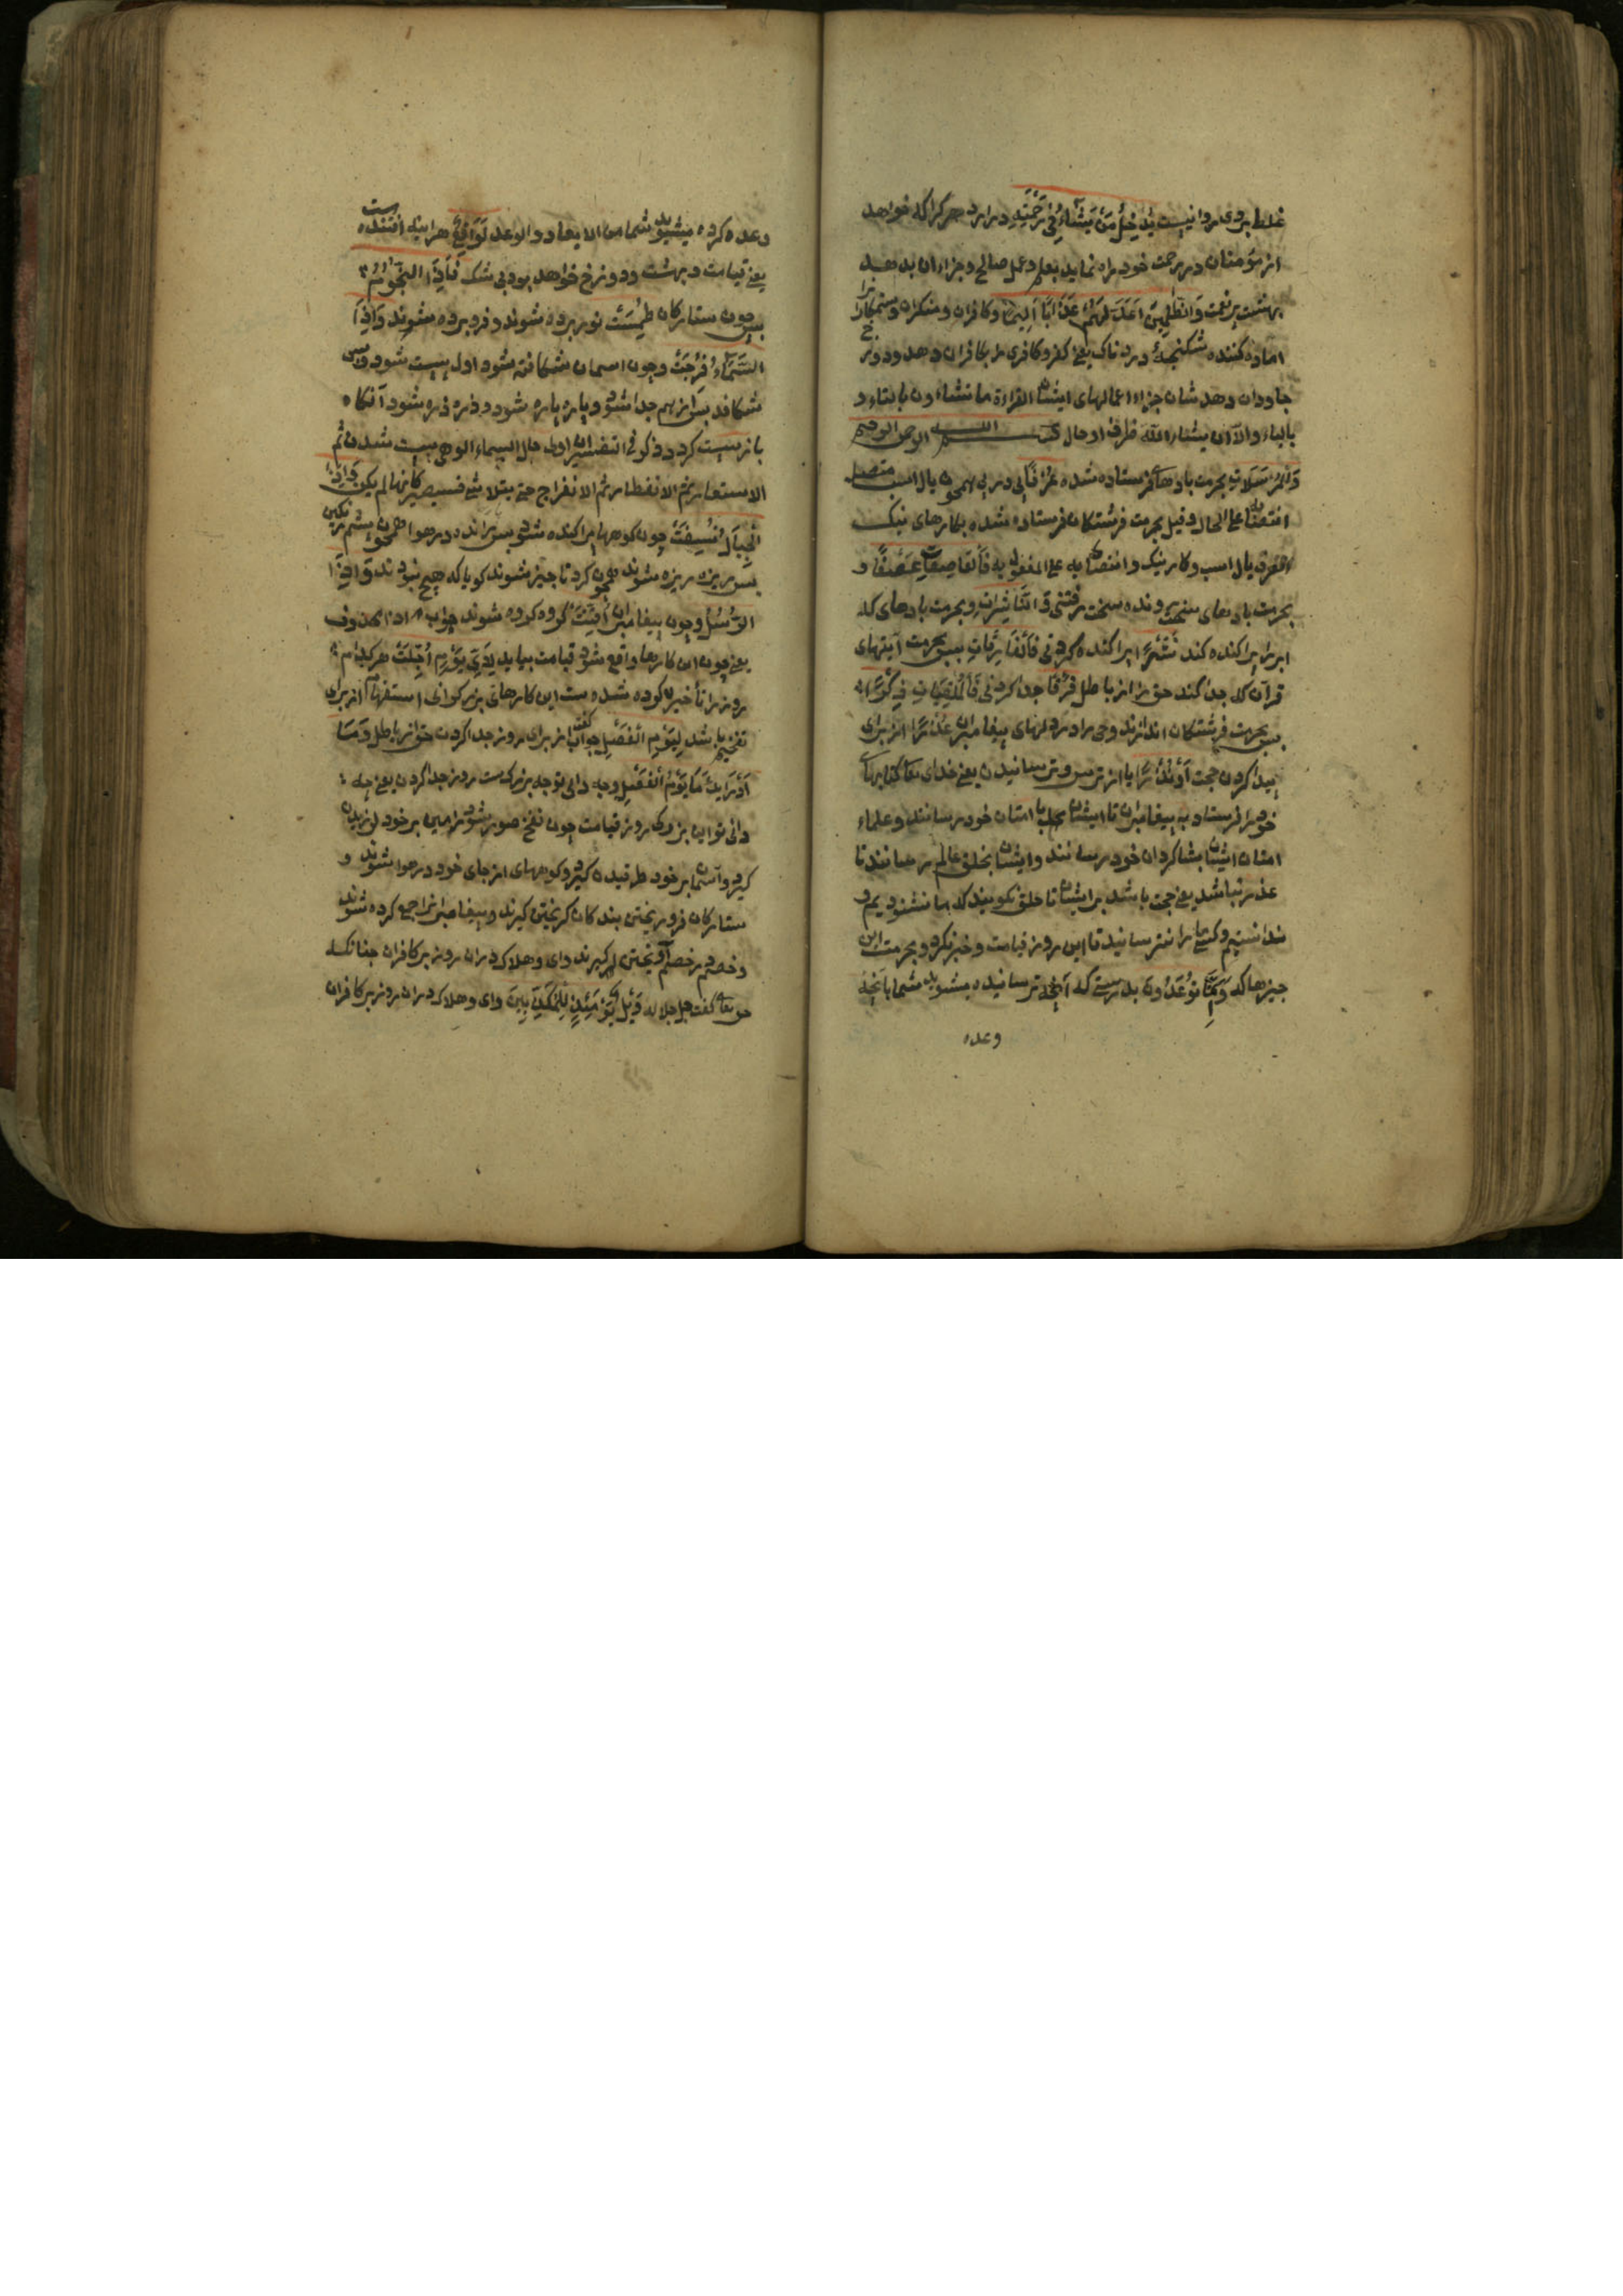 غلط بردی روا نیست یُدْخِلُ مَنْ یَشَاءُ فِی رَحْمَتِهِ درارد هرکرا که خواهد
از مؤمنان در رحمت خود راه نماید بعلم و عمل صالح و جزاء ان بدهد
بهشت پر نعمت وَالظَّالِمِینَ اَعَدَّ لَهُمْ عَذَابًا اَلِیمًا وکافران ومنکران وستمکاران را
اماده کننده شکنجهٔ دردناک یعنی کفر وکافری مر کافران دهد ودوزخ
جاودان دهد شان جزاء اعمالهای ایشان القراءة ما تشاءون بالتاء و
بالیاء والآ ان یشاء الله ظرف او حال بسم الله الرحمن الرحیم
وَالْمُرْسَلَاتِ بحرمت بادهای فرستاده شده عُرْفًا پی در پی همچون یال اسب متصل
انتصابه علی الحال وقیل بحرمت فرشتکان فرستاده شده بکارهای نیک
العرف یال اسب وکار نیک وانتصابه علی المفعول به فَالْعَاصِفَاتِ عَصْفًا و
بحرمت بادهای سخت رونده سخت رفتنی وَالنَّاشِرَاتِ وبحرمت بادهای که
ابر را پراکنده کند نَشْرًا پراکنده کردنی فَالْفَارِقَاتِ پس بحرمت آیتهای
قرآن که جدا کند حق را از باطل فَرْقًا جدا کردنی فَالْمُلْقِیَاتِ ذِکْرًا
پس بحرمت فرشتکان اندازند وحی را در دلهای پیغامبران عُذْرًا از برای
پیدا کردن حجت اَوْ نُذْرًا یا از ترس وترسانیدن یعنی خدای تعالی کتابهای
خود را فرستاد به پیغامبران تا ایشان بامتان خود رسانند وعلماء
امتان ایشان بشاکردان خود رسانند وایشان بخلق عالم رسانند تا
عذر نباشد یعنی حجت باشد بر ایشان تا خلق نکویند که ما نشنودیم و
ندانستیم وکسی ما را نترسانید تا این روز قیامت وخبر نکرد وبحرمت این
چیزها که اِنَّمَا تُوعَدُونَ بدرستی که آنچه ترسانیده میشوید شما بآنچه
وعده
وعده کرده میشوید شما من الایعاد والوعد لَوَاقِعٌ هراینه افتنده است
یعنی قیامت وبهشت ودوزخ خواهد بود بی شک فَاِذَا النُّجُومُ
پس چون ستارکان طُمِسَتْ نور برده شوند وفرو برده شوند وَاِذَا
السَّمَاءُ فُرِجَتْ وچون اسمان شکافته شود اول سست شود وپس
شکافد پس از هم جدا شود وپاره پاره شود وذره ذره شود آنکاه
باز نیست کردد ذکر فی التفسیر اول حال السماء الوهی سست شدن ثم
ثم الانفطار ثم الانفراج حتی یتلاشی فیصیر کانها لم یکن وَاِذَا
الْجِبَالُ نُسِفَتْ چون کوهها پراکنده شود پس پرانده در هوا همچون پشم رنکین
پس ریزه ریزه شوند همچون کرد ناچیز شوند کویا که هیچ نبودند وَاِذَا
الرُّسُلُ وچون پیغامبران اُقِّتَتْ کروه کروه شوند جواب اذا محذوف
یعنی چون این کارها واقع شود قیامت بیاید لِاَیِّ یَوْمٍ اُجِّلَتْ هر کدام
روز را تأخیر کرده شده ست این کارهای بزرک وای استفهام از برای
تفخیم باشد لِیَوْمِ الْفَصْلِ جواب گفت از برای روز جدا کردن حق از باطل وَمَا
اَدْرَاکَ مَا یَوْمُ الْفَصْلِ وچه دانی تو چه بزرکست روز جدا کردن یعنی چه
دانی تو این بزرکی روز قیامت چون نفخ صور شود زمین بر خود لرزیدن
کیرد وآسمان بر خود طرقیدن کیرد وکوههای از جای خود در هوا شوند و
ستارکان فرو ریختن بندکان کریختن کیرند وپیغامبران را جمع کرده شوند
وخصم بر خصم آویختن کیرند وای وهلاک دران روز بر کافران چنانکه
حق تعالی کفت جل جلاله وَیْلٌ یَوْمَئِذٍ لِلْمُکَذِّبِینَ وای وهلاک دران روز بر کافران